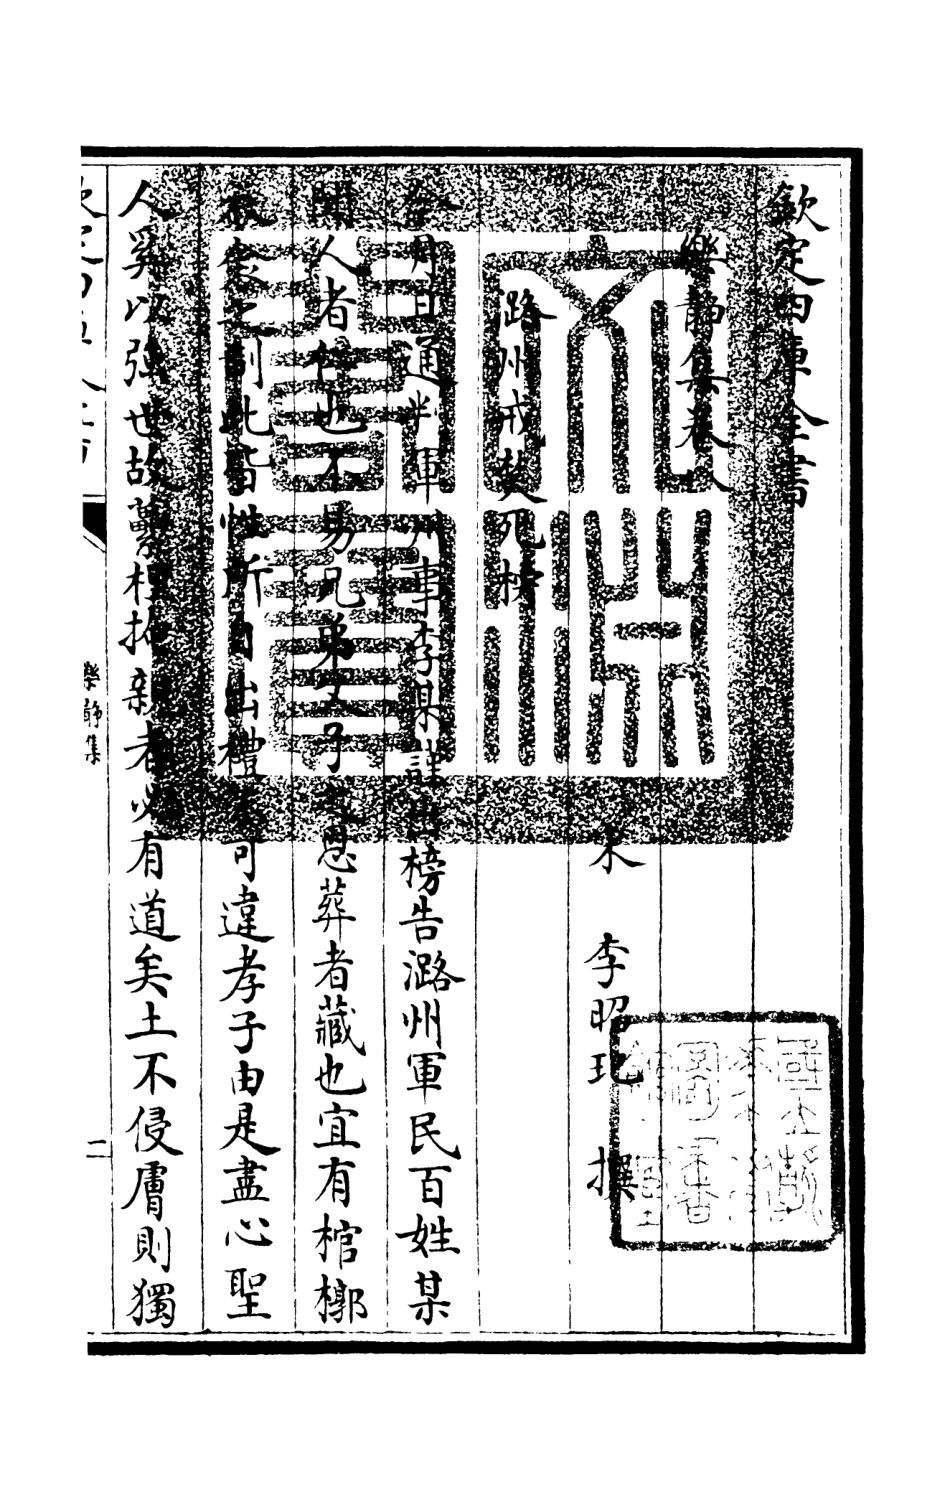 欽定四庫全書
樂靜集卷八
宋 李昭玘 撰
潞州戒焚死榜
月日通判軍州事李某謹出榜告潞州軍民百姓某
聞人者仁也不易兄弟父子之恩葬者藏也宜有棺槨
衣衾之制此皆性所自出禮不可違孝子由是盡心聖
人奚以強世故虆梩掩親者必有道矣土不侵膚則獨
樂靜集
二